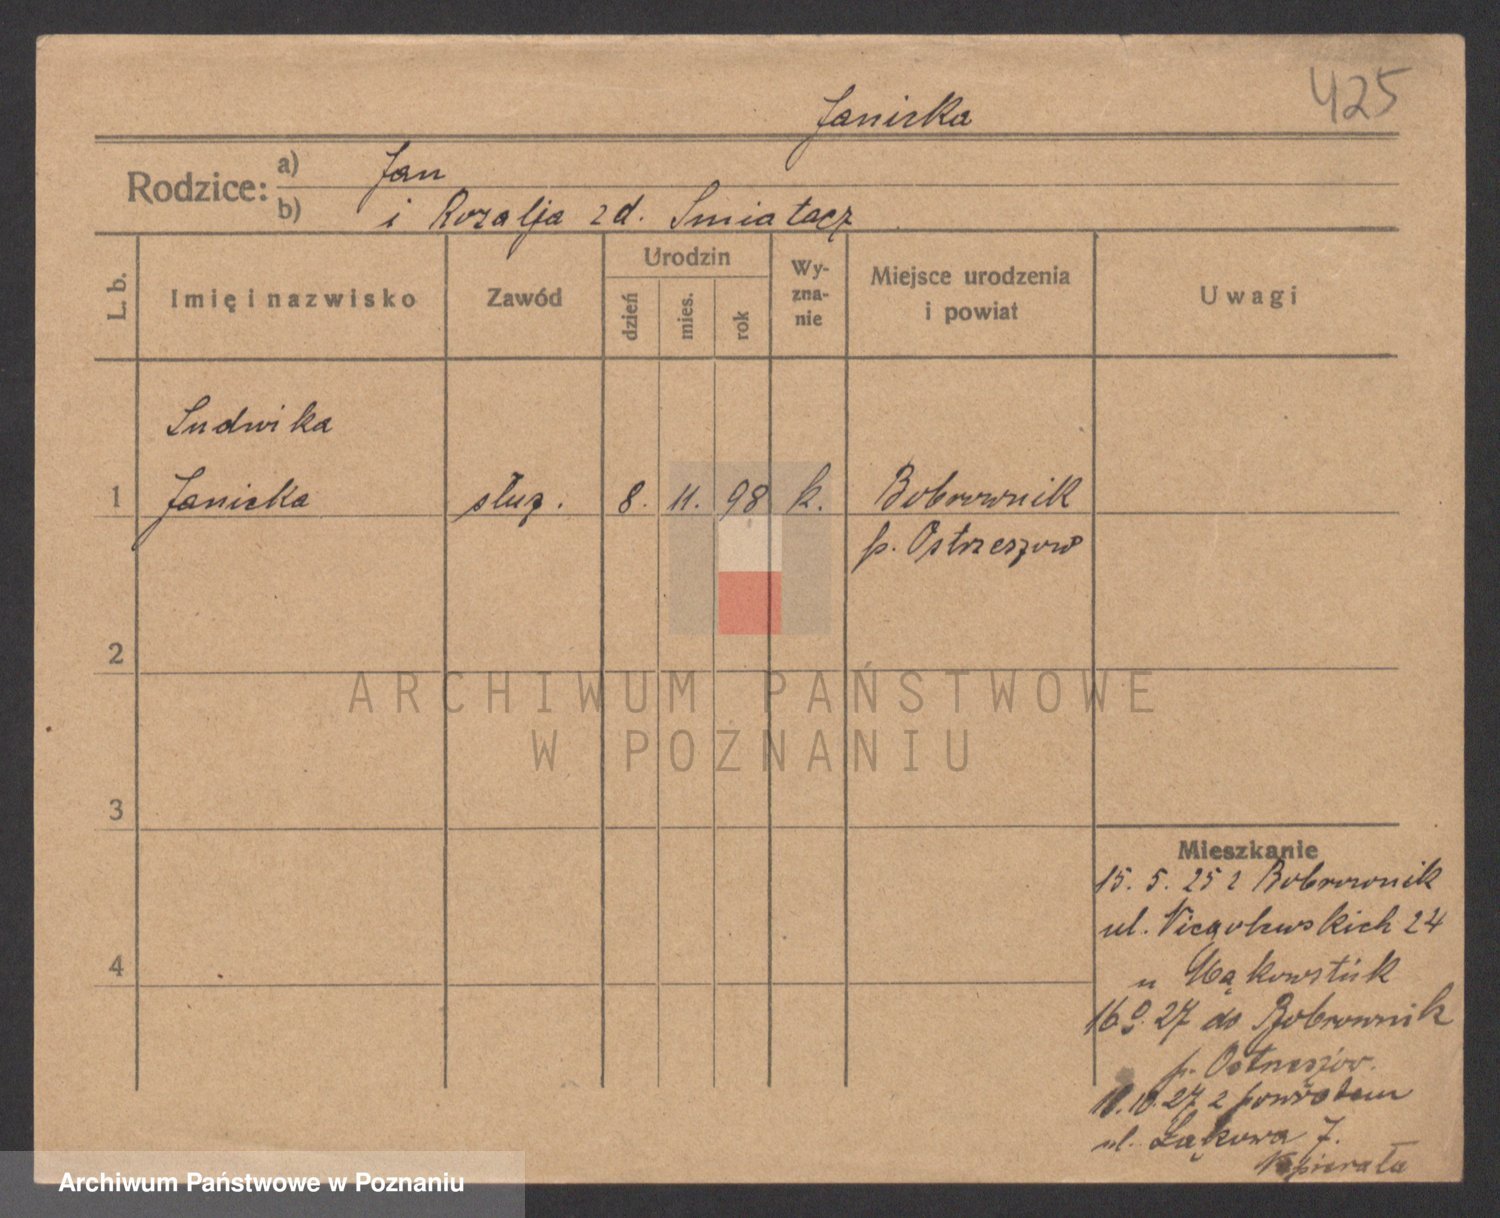 425
Janicka
Rodzice:
a) Jan
b) i Rozalja zd. Smiatacz
L. b.
Imię i nazwisko
Zawód
Urodzin
dzień
mies.
rok
Wy-
zna-
nie
Miejsce urodzenia
i powiat
Uwagi
Ludwika
1 Janicka służ. 8. 11. 98 k. Bobrownik
p. Ostrzeszow
2
3
4
ARCHIWUM PAŃSTWOWE
W POZNANIU
Mieszkanie
15. 5. 25 z Bobrownik
ul. 24
u
16.9.27 do Bobrownik
p. Ostrzeszów.
10.27 z powrotem
ul. Łąkowa 7.
Archiwum Państwowe w Poznaniu